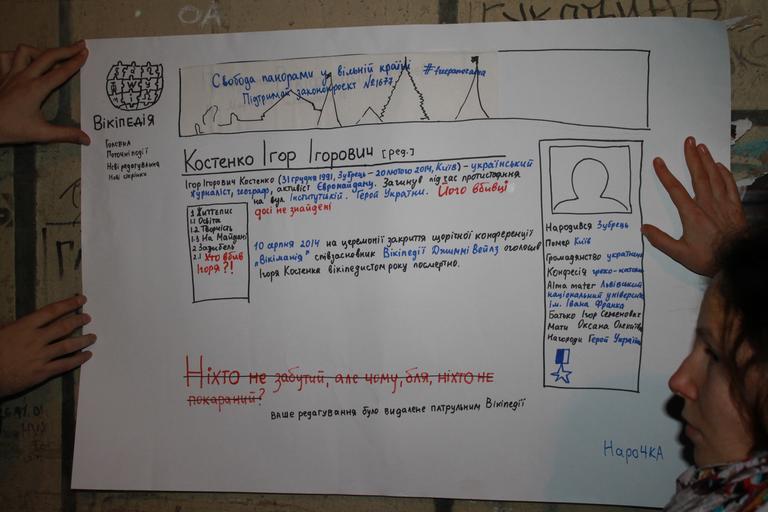 Свобода панорами у вільній країні #freepanorama
Підтримай законопроєкт №1677
Вікіпедія
Головна
Поточні події
Нові редагування
Нові сторінки
Костенко Ігор Ігорович [ред.]
Ігор Ігорович Костенко (31 грудня 1991, Зубрець – 20 лютого 2014, Київ) – український
журналіст, географ, активіст Євромайдану. Загинув під час протистояння
на вул Інститутській. Герой України. Його вбивці
досі не знайдені
1 Життєпис
1.1 Освіта
1.2 Творчість
1.3 На Майдані
2 Загибель
2.1 Хто вбив
Ігоря?!
10 серпня 2014 на церемонії закриття щорічної конференції
"Вікіманія" співзасновник Вікіпедії Джиммі Вейлз оголосив
Ігоря Костенка вікіпедистом року посмертно.
Народився Зубрець
Помер Київ
Громадянство українець
Конфесія греко-катол
Alma mater Львівський
національний універси
ім. Івана Франка
Батько Ігор Семенович
Мати Оксана Олексіївн
Нагороди Герой України
Ніхто не забутий, але чому, бля, ніхто не
покараний?
ваше редагування було видалене патрульним Вікіпедії
Наро4КА
ОА